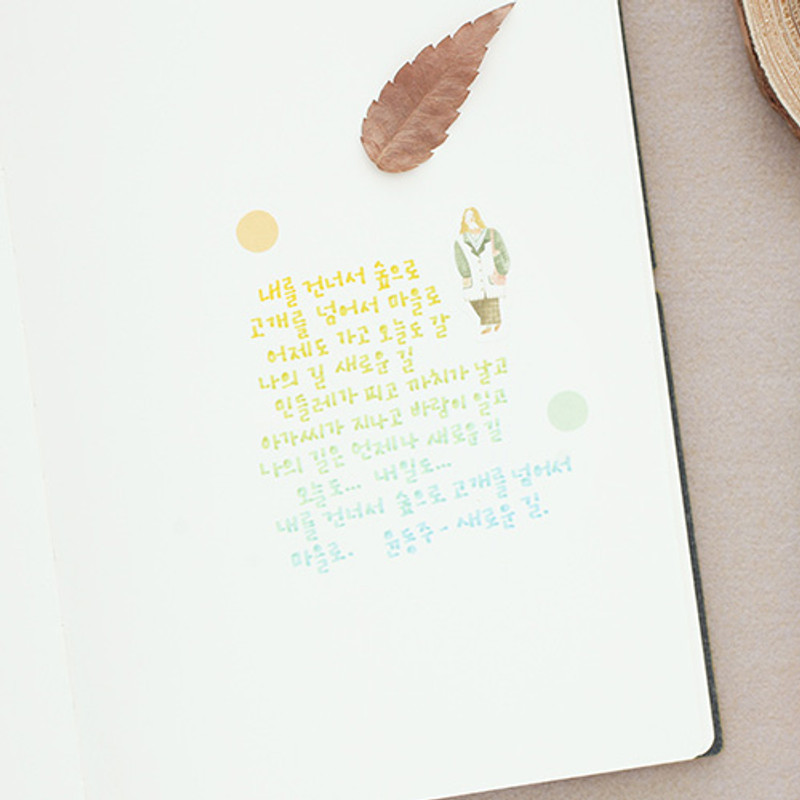 내를 건너서 숲으로
고개를 넘어서 마을로
어제도 가고 오늘도 갈
나의 길 새로운 길
민들레가 피고 까치가 날고
아가씨가 지나고 바람이 일고
나의 길은 언제나 새로운 길
오늘도... 내일도...
내를 건너서 숲으로 고개를 넘어서
마을로. 윤동주 - 새로운 길.